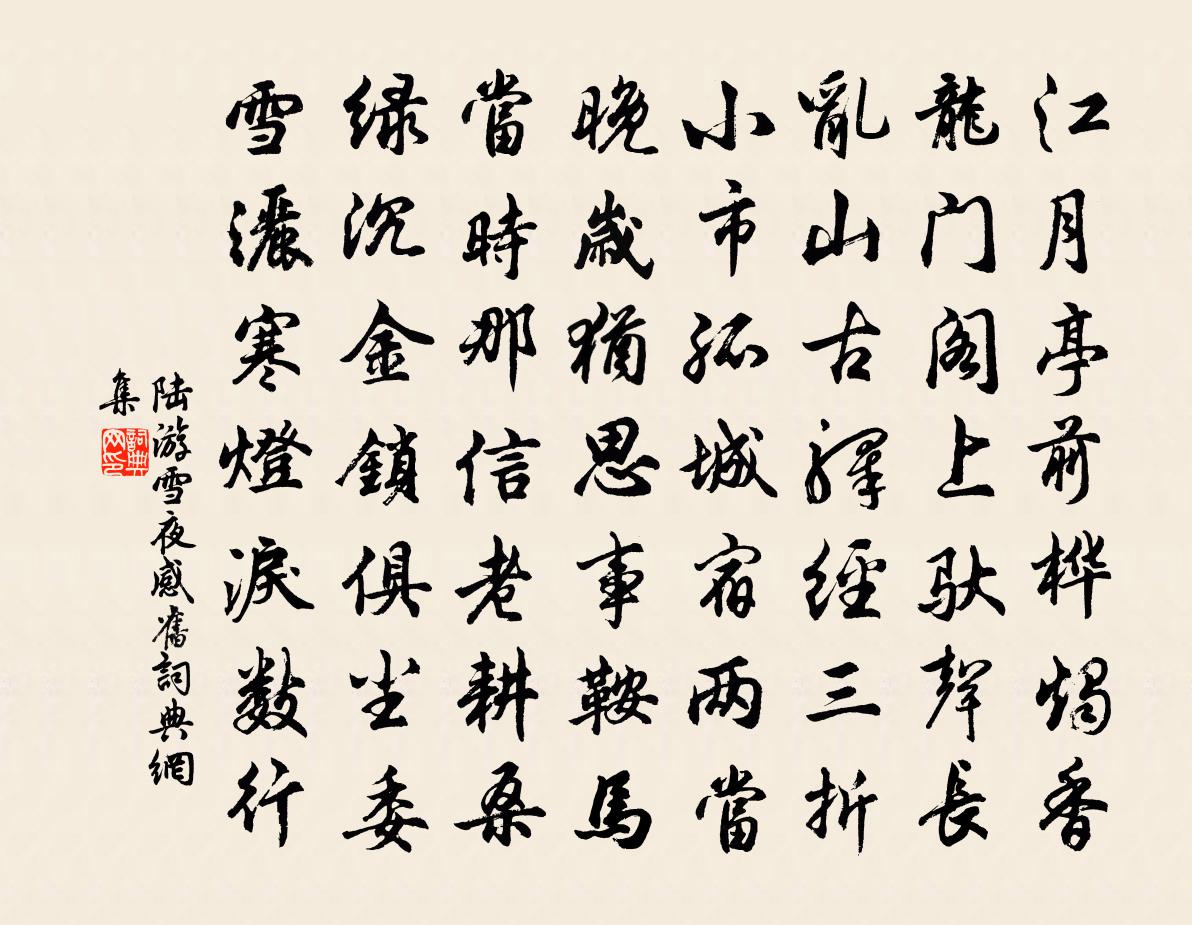 江月亭前桦燭香
龍门阁上驮聲長
亂山古驛經三折
小市孤城宿两當
晚歲猶思事鞍馬
當時那信老耕桑
绿沉金鎖俱尘委
雪灑寒燈淚數行
陆游雪夜感舊詞典網
集
詞典
网印